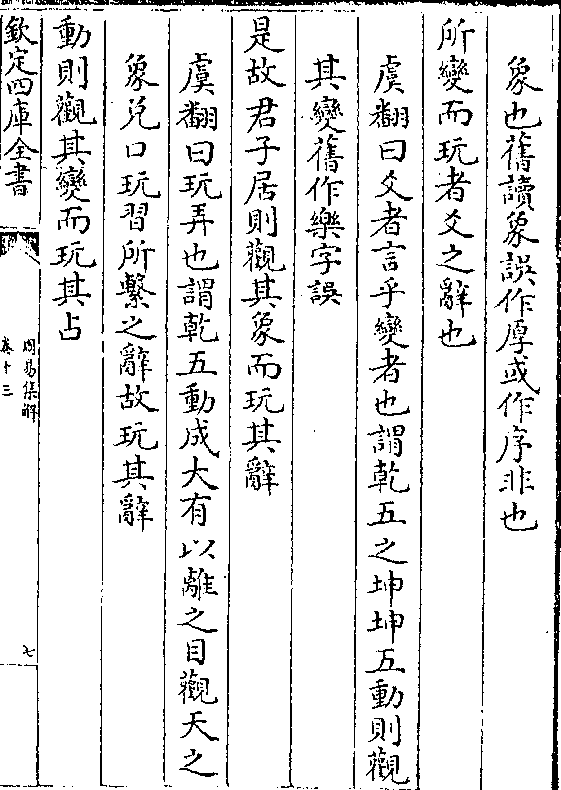 象也舊讀象誤作厚或作序非也
所變而玩者爻之辭也
虞翻曰爻者言乎變者也謂乾五之坤坤五動則觀
其變舊作樂字誤
是故君子居則觀其象而玩其辭
虞翻曰玩弄也謂乾五動成大有以離之目觀天之
象兌口玩習所繫之辭故玩其辭
動則觀其變而玩其占
欽定四庫全書
周易集解
卷十三
七